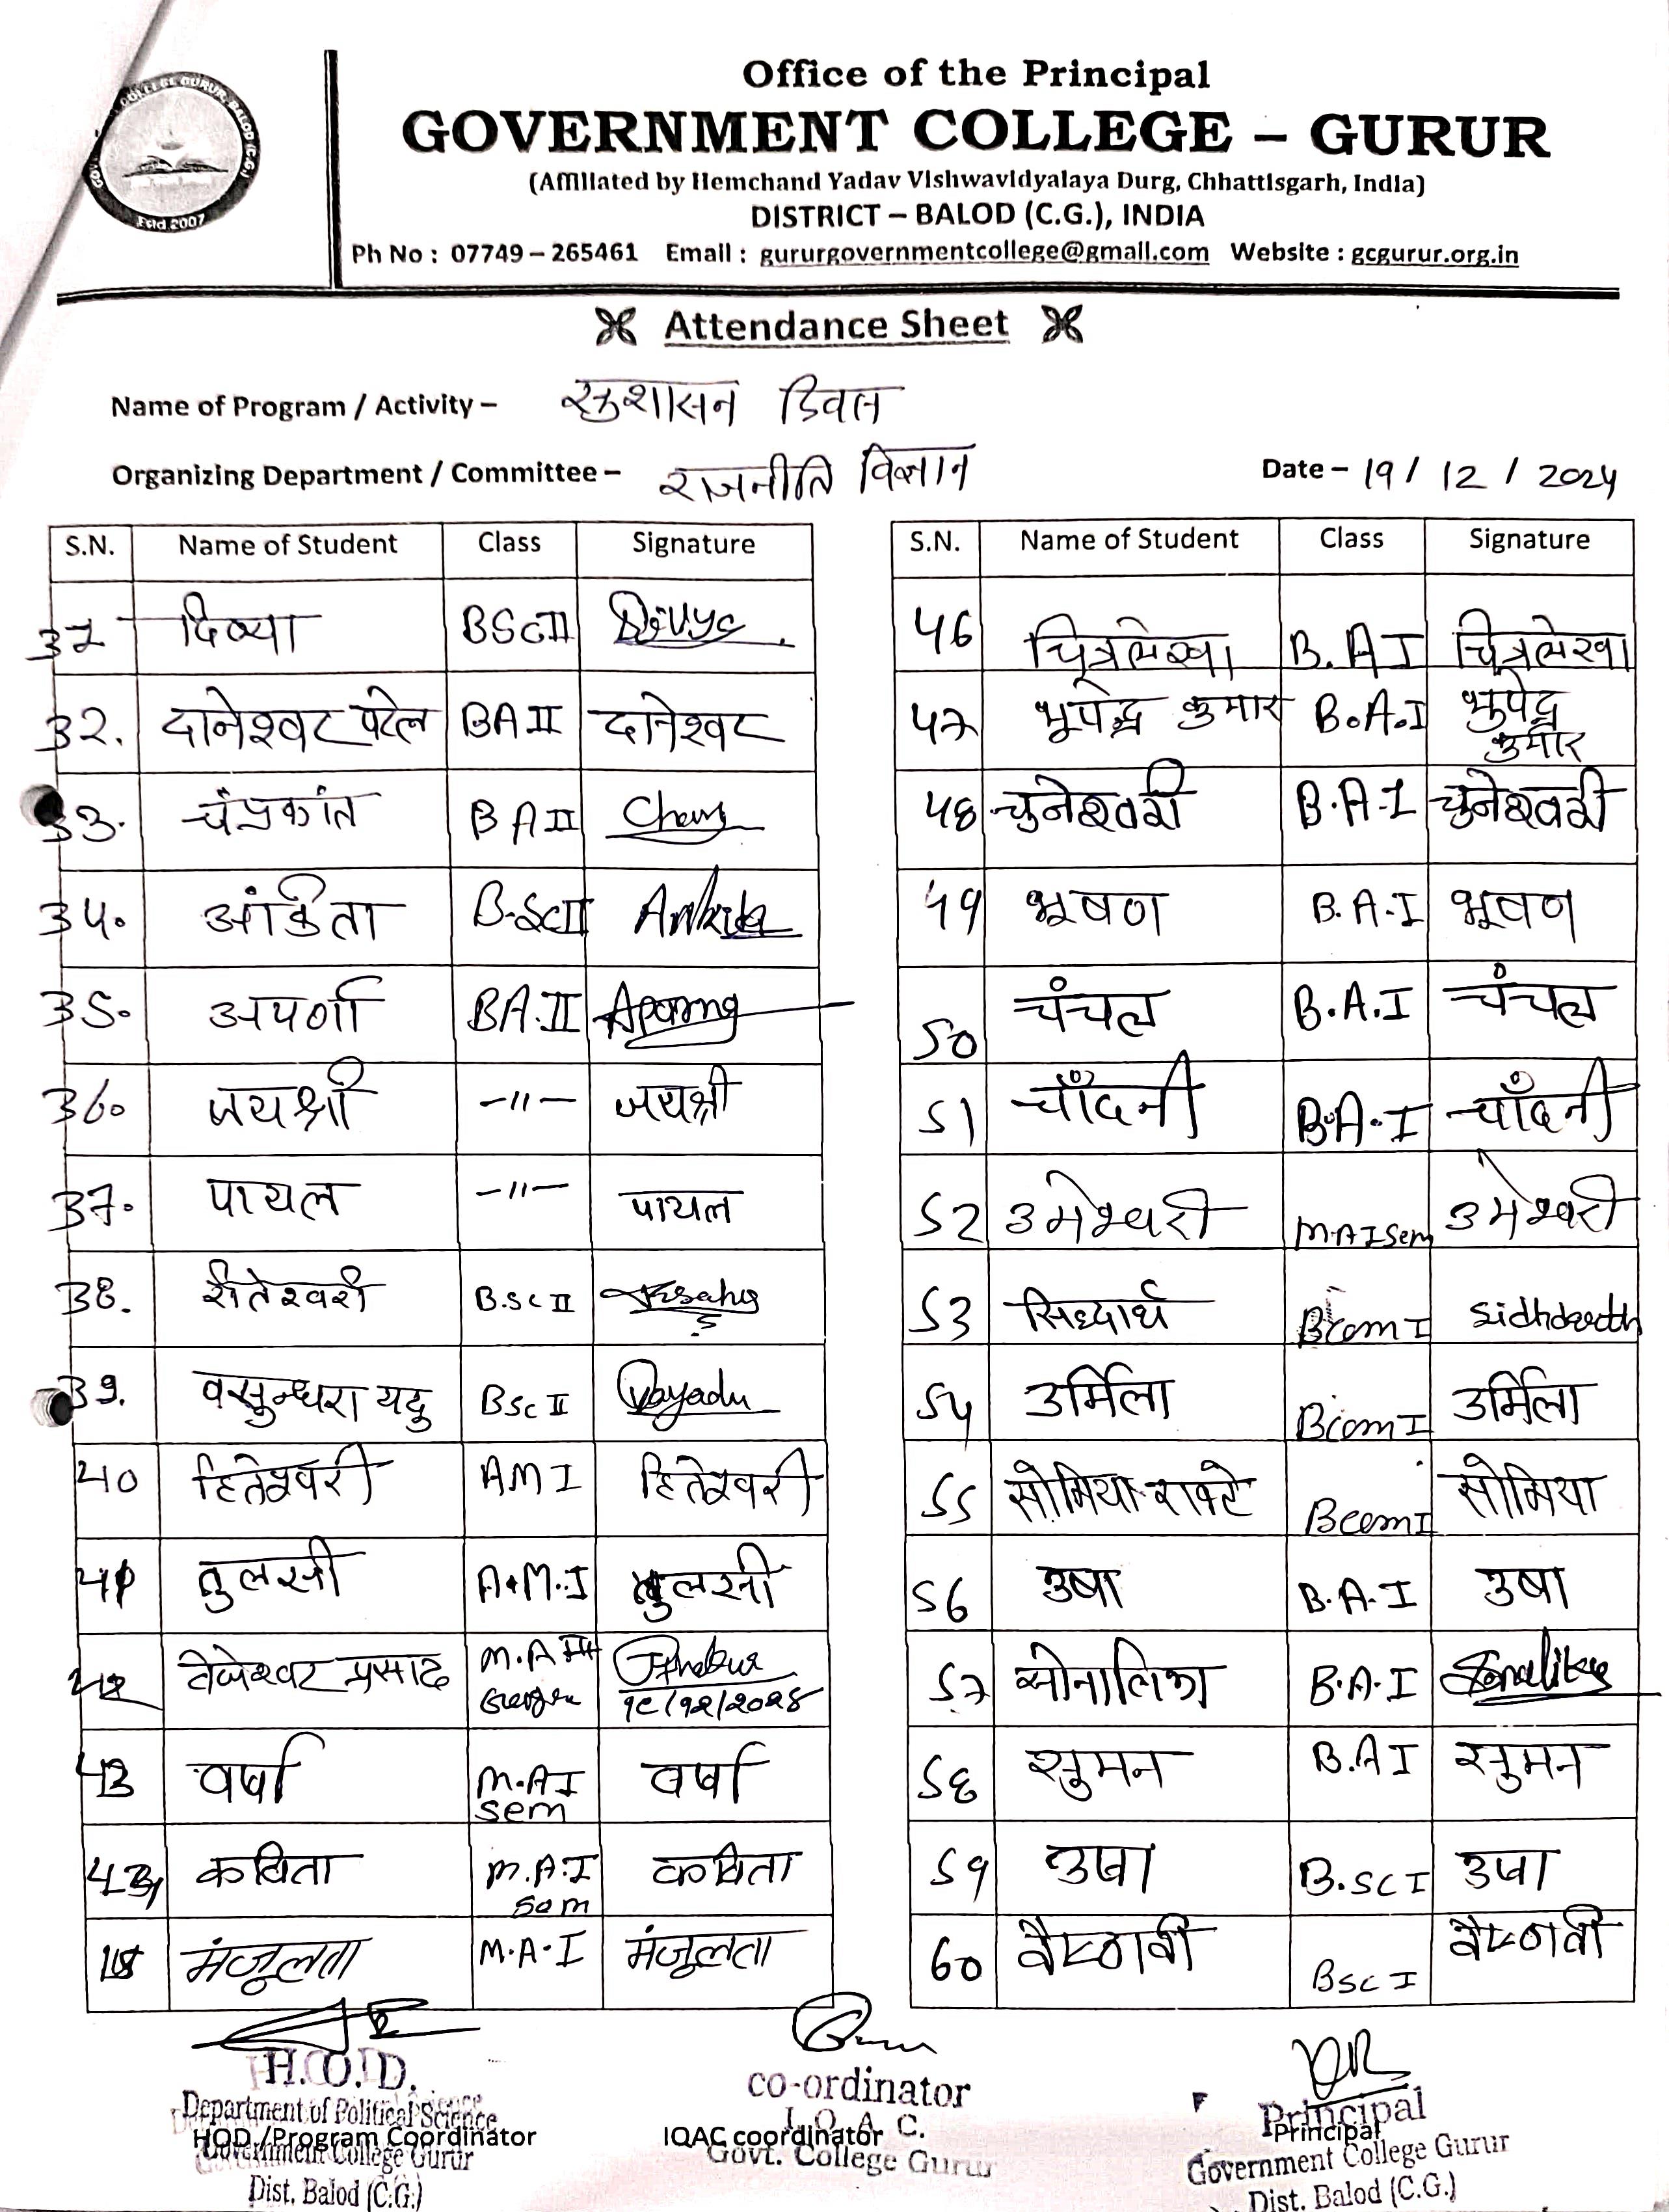 Office of the Principal
GOVERNMENT COLLEGE – GURUR
(Affiliated by Hemchand Yadav Vishwavidyalaya Durg, Chhattisgarh, India)
DISTRICT – BALOD (C.G.), INDIA
Ph No : 07749 – 265461 Email : gururgovernmentcollege@gmail.com Website : gcgurur.org.in
Estd 2007
Attendance Sheet
Name of Program / Activity – सुशासन दिवस
Organizing Department / Committee – राजनीति विज्ञान Date – 19/12/2024
S.N. Name of Student Class Signature
दिव्या BSc II Divya
32. दानेश्वर पटेल BA II दानेश्वर
33. चंद्रकांत BA II
34. अंकिता B.Sc II Ankita
35. अपर्णा BA.II Aparna
36. जयश्री –11– जयश्री
37. पायल –11– पायल
38. रीतेश्वरी B.Sc II
39. वसुन्धरा यदु BSc II Vayadu
40 हितेश्वरी AM I हितेश्वरी
41 तुलसी A.M.I तुलसी
42 तेजेश्वर प्रसाद M.A III
43 वर्षा M.A I वर्षा
sem
कविता M.A.I कविता
sem
मंजूलता M.A.I मंजूलता
S.N. Name of Student Class Signature
46 चित्रलेखा B.A I चित्रलेखा
47 भूपेंद्र कुमार B.A.I भूपेंद्र
कुमार
48 चुनेश्वरी B.A.I चुनेश्वरी
49 भूषण B.A.I भूषण
50 चंचल B.A.I चंचल
51 चाँदनी B.A.I चाँदनी
52 उमेश्वरी M.A I Sem उमेश्वरी
53 सिध्दार्थ Bcom I Sidhdarth
54 उर्मिला Bcom I उर्मिला
55 सोमिया Bcom I सोमिया
56 उषा B.A.I उषा
57 सोनालिका B.A.I Sonalika
58 सुमन B.A I सुमन
59 उषा B.SC I उषा
60 वैष्णवी BSC I वैष्णवी
H.O.D.
Department of Political Science
HOD /Program Coordinator
Government College Gurur
Dist. Balod (C.G.)
co-ordinator
I. Q. A. C.
IQAC coordinator
Govt. College Gurur
Principal
Principal
Government College Gurur
Dist. Balod (C.G.)